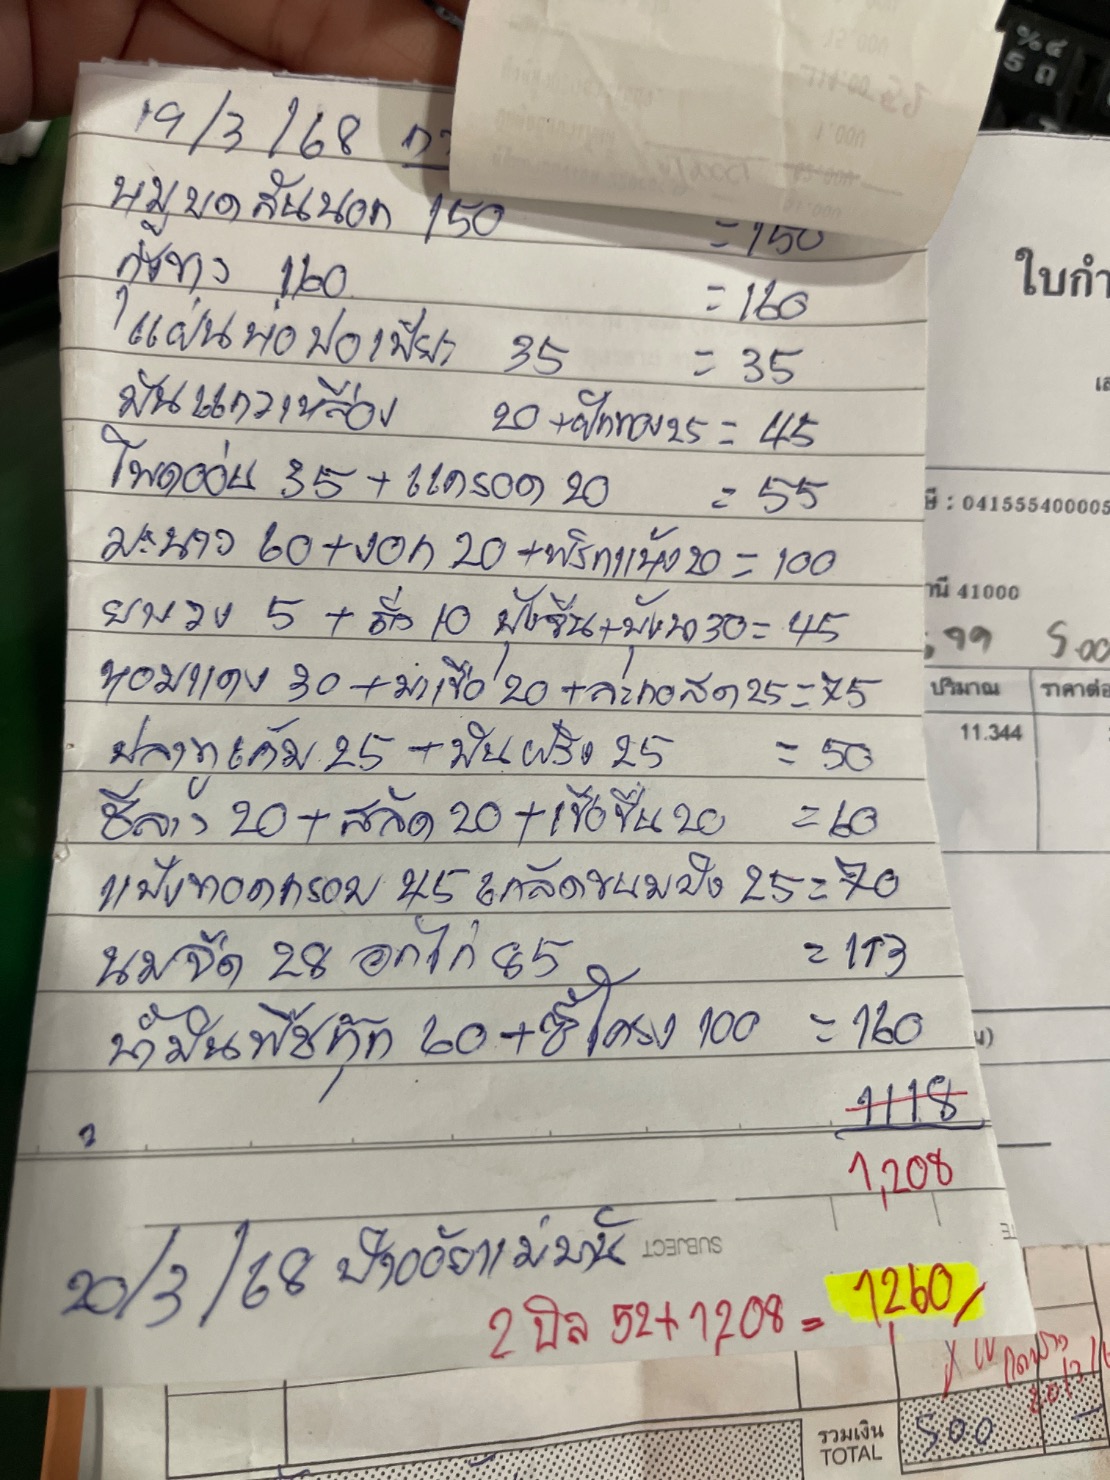 19/3/68
หมูบดสันนอก 150 = 150
กุ้งขาว 160 = 160
แผ่นห่อปอเปี๊ยะ 35 = 35
มันแกวเหลือง 20 + ฝักทอง 25 = 45
โพดอ่อน 35 + แครอด 20 = 55
มะนาว 60 + งอก 20 + พริกแห้ง 20 = 100
5 + 10 30 = 45
หอมแดง 30 + มะเขือ 20 + สด 25 = 75
ปลาทูเค้ม 25 + มันฝรั่ง 25 = 50
ชีลาว 20 + สลัด 20 + 20 = 60
แป้งทอดกรอบ 45 เกล็ดขนมปัง 25 = 70
นมจืด 28 อกไก่ 85 = 113
น้ำมันพืชกุ๊ก 60 + ซี่โครง 100 = 160
1118
1,208
20/3/68
SUBJECT
2 บิล 52 + 1,208 = 1260/
ใบกำ
: 041555400005
41000
99 500
ปริมาณ ราคาต่อ
11.344
รวมเงิน
TOTAL 500 -